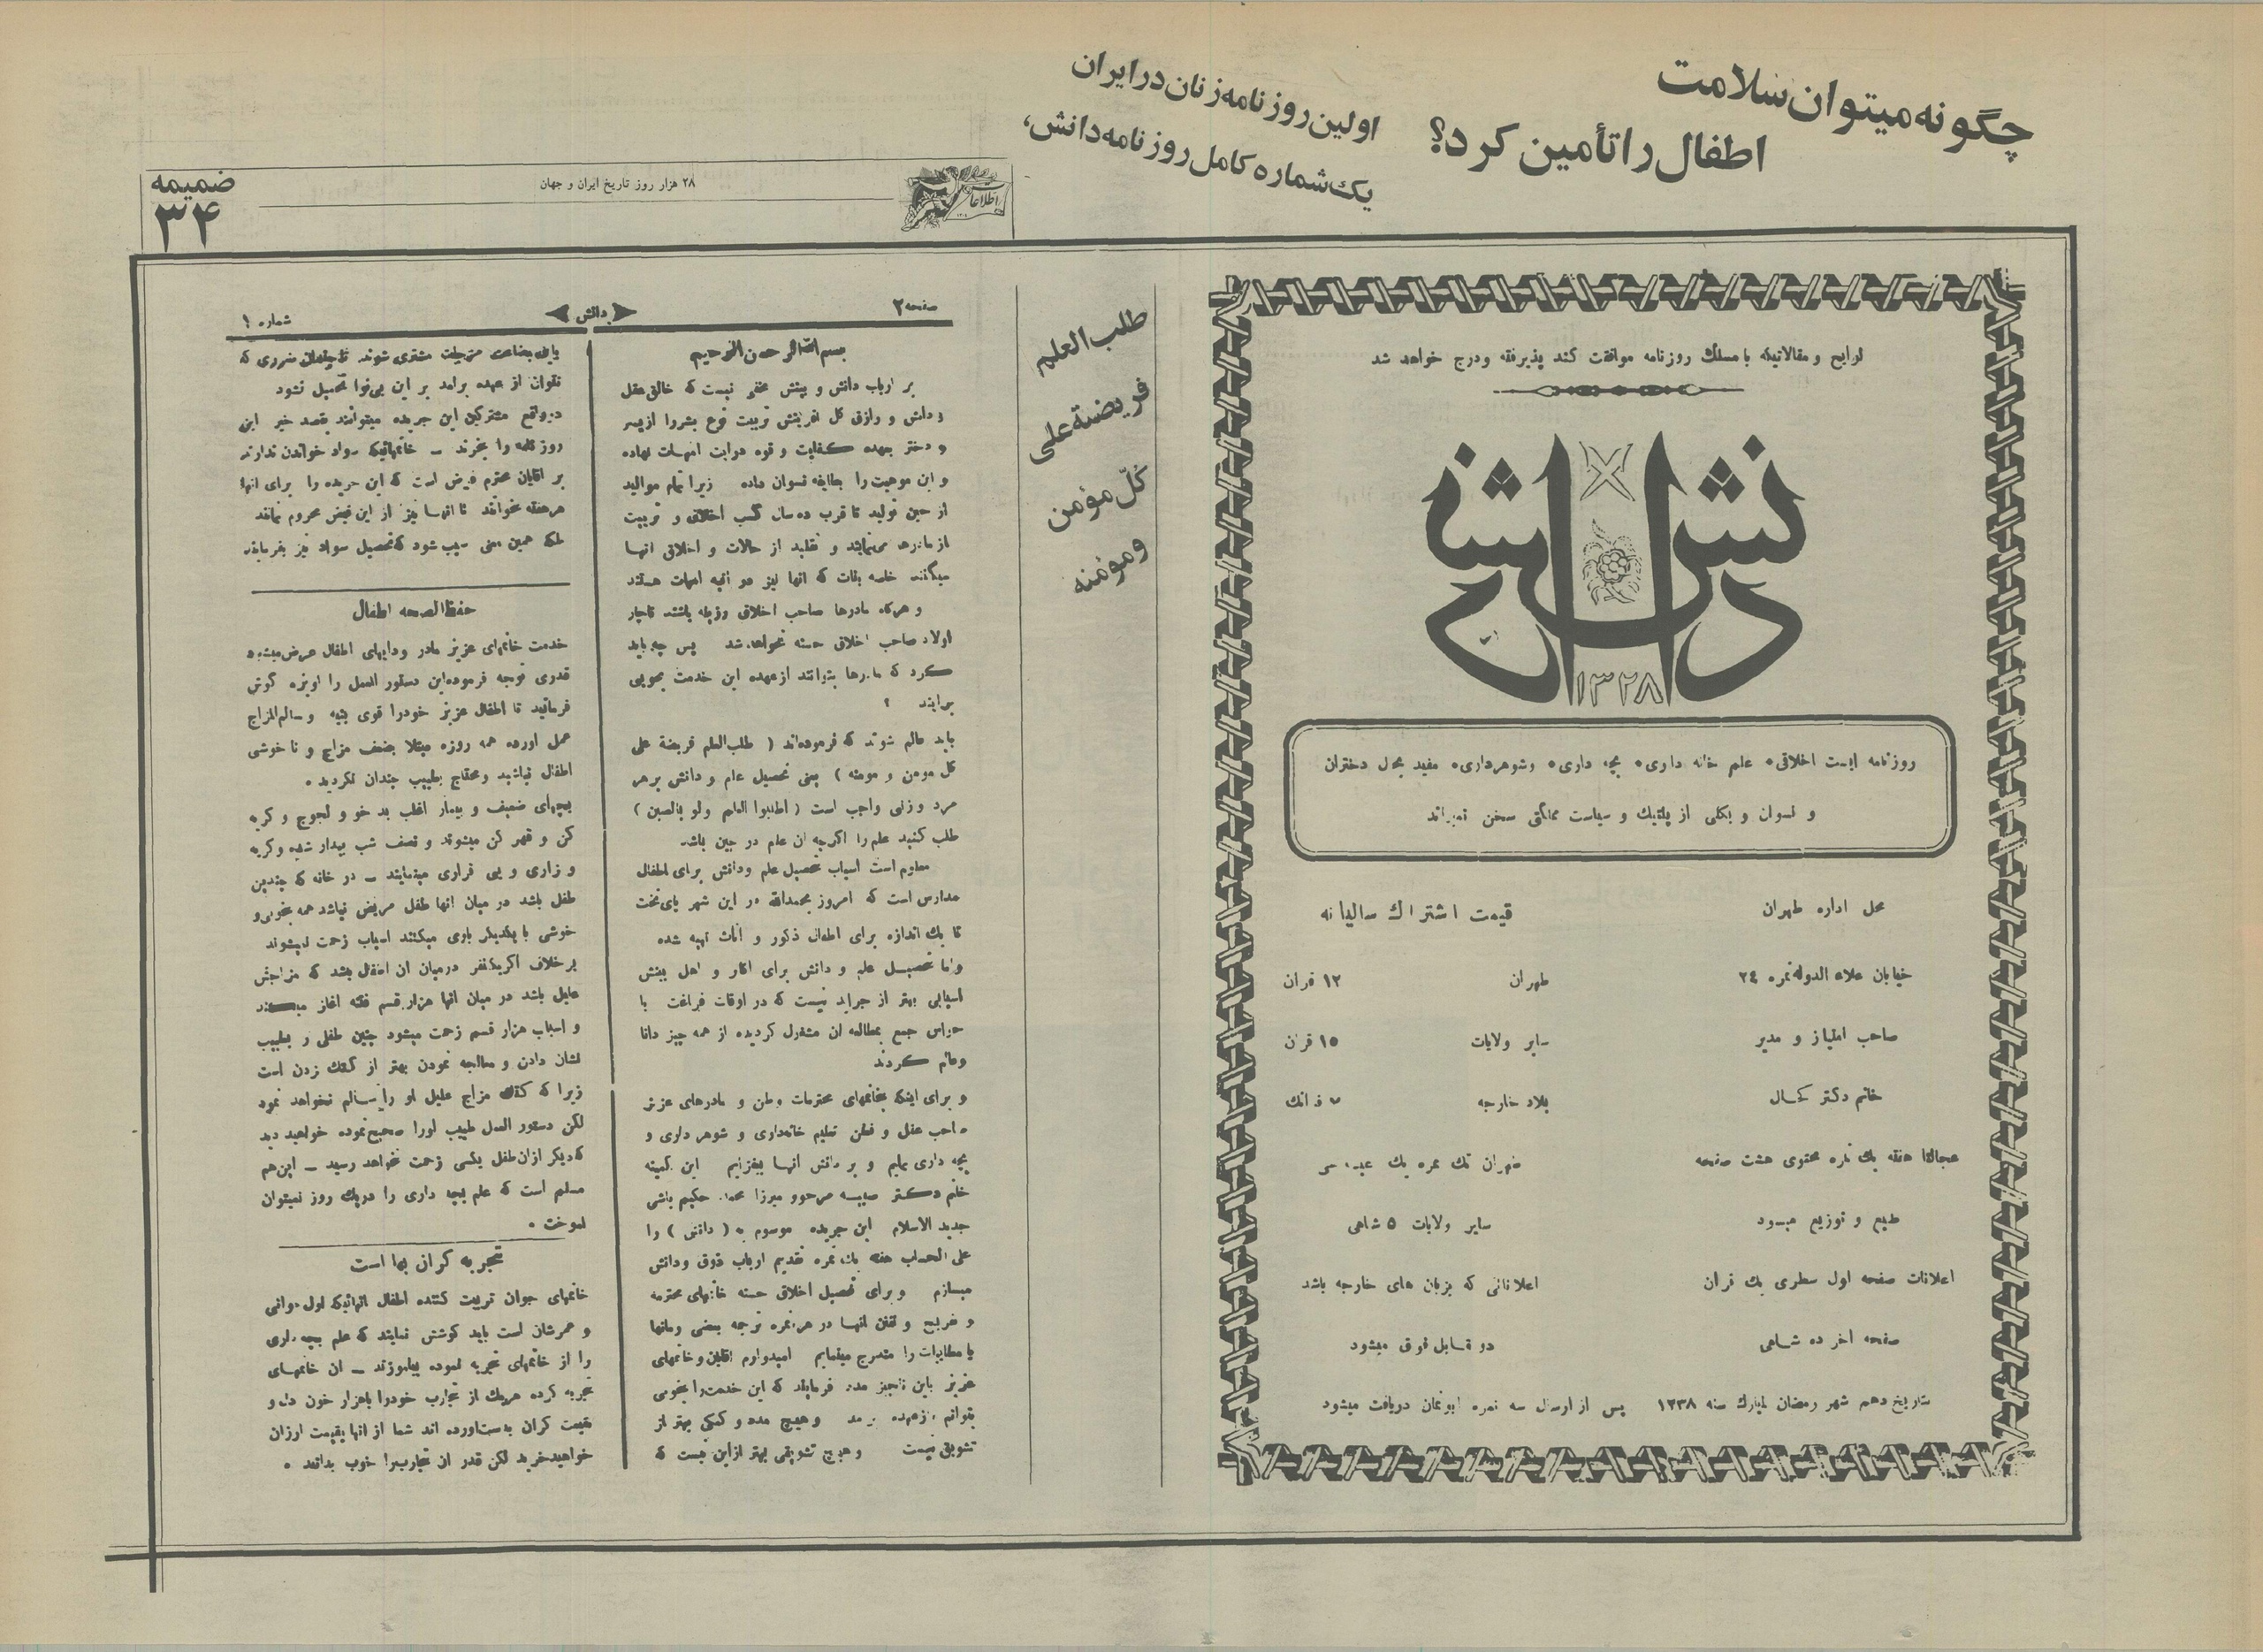 چگونه میتوان سلامت
اطفال را تأمین کرد؟
اولین روزنامه زنان در ایران
یک شماره کامل روزنامه دانش،
اطلاعات
۲۸ هزار روز تاریخ ایران و جهان
ضمیمه
۳۴
لوایح و مقالاتیکه با مسلک روزنامه موافقت کند پذیرفته ودرج خواهد شد
دانش
۱۳۲۸
روزنامه ایست اخلاقی، علم خانه داری، بچه داری، وشوهرداری، مفید بحال دختران
و نسوان و بکلی از پلتیک و سیاست مملکتی سخن نمیراند
محل اداره طهران
خیابان علاء الدوله نمره ۲٤
صاحب امتیاز و مدیر
خانم دکتر کحال
عجالتا هفته یک نمره محتوی هشت صفحه
طبع و توزیع میشود
اعلانات صفحه اول سطری یک قران
صفحه اخر ده شاهی
قیمت اشتراک سالیانه
طهران ۱۲ قران
سایر ولایات ۱٥ قران
بلاد خارجه فرانک
طهران تک نمره یک
سایر ولایات ٥ شاهی
اعلاناتی که بزبان های خارجه باشد
دو مقابل فوق میشود
بتاریخ دهم شهر رمضان المبارک سنه ۱۲۳۸ پس از ارسال سه نمره ابونمان دریافت میشود
طلب العلم
فریضة علی
کلّ مؤمن
ومؤمنه
صفحه ۲
دانش
شماره ۱
بسم الله الرحمن الرحیم
بر ارباب دانش و بینش مخفی نیست که خالق عقل
و دانش و رازق کل افرینش تربیت نوع بشررا ازپسر
و دختر بعهده کفایت و قوه درایت امهات نهاده
و این موهبت را بطایفه نسوان داده زیرا تمام موالید
از حین تولید تا قرب ده سال کسب اخلاق و تربیت
از مادرها می‌نمایند و تقلید از حالات و اخلاق انها
میکنند خاصه بنات که انها نیز هو اتیه امهات هستند
و هرگاه مادرها صاحب اخلاق رزیله باشند ناچار
اولاد صاحب اخلاق حسنه نخواهد شد پس چه باید
کرد که مادرها بتوانند ازعهده این خدمت بخوبی
برایند ؟
باید عالم شوند که فرموده‌اند ( طلب العلم فریضة علی
کل مومن و مومنه ) یعنی تحصیل علم و دانش برهر
مرد و زنی واجب است ( اطلبوا العلم ولو بالصین )
طلب کنید علم را اکرچه ان علم در چین باشد
معلوم است اسباب تحصیل علم ودانش برای اطفال
مدارس است که امروز بحمدالله در این شهر پای‌تخت
تا یک اندازه برای اطفال ذکور و اناث تهیه شده
واما تحصیل علم و دانش برای اکابر و اهل بینش
اسبابی بهتر از جراید نیست که در اوقات فراغت با
حواس جمع بمطالعه ان مشغول کردیده از همه چیز دانا
وعالم کردند
و برای اینکه بخانمهای محترمات وطن و مادرهای عزیز
صاحب عقل و فطن تعلیم خانه‌داری و شوهر داری و
بچه داری نمایم و بر دانش انها بیفزایم این کمینه
خانم دکتر صبیه مرحوم میرزا محمد حکیم باشی
جدید الاسلام این جریده موسوم به ( دانش ) را
علی الحساب هفته یک نمره تقدیم ارباب ذوق ودانش
میسازم وبرای تحصیل اخلاق حسنه خانمهای محترمه
و تفریح و تفنن انها در هرنمره ترجمه بعضی رمانها
یا مطایبات را مندرج مینمایم امیدوارم اقایان و خانمهای
عزیز باین ناچیز مدد فرمایند که این خدمت را بخوبی
بتوانم ازعهده برمد وهیچ مدد و کمکی بهتر از
تشویق نیست وهیچ تشویقی بهتر ازاین نیست که
باین بضاعت مزجات مشتری شوند تا چاپ ضرری که
نتوان از عهده برامد بر این بی‌نوا تحمیل نشود
درواقع مشترکین این جریده میتوانند بقصد خیر این
روزنامه را بخرند ــ خانمهائیکه سواد خواندن ندارند
بر اقایان محترم فرض است که این جریده را برای انها
هرهفته بخوانند تا انها نیز از این فیض محروم نمانند
بلکه همین معنی سبب شود که تحصیل سواد نیز بفرمایند
حفظ الصحه اطفال
خدمت خانمهای عزیز مادر ودایهای اطفال عرض میشود
قدری توجه فرموده این دستور العمل را اویزه گوش
فرمائید تا اطفال عزیز خودرا قوی بنیه و سالم المزاج
عمل اورده همه روزه مبتلا بضعف مزاج و نا خوشی
اطفال نباشید ومحتاج بطبیب چندان نکردید .
بچهای ضعیف و بیمار اغلب بد خو و لجوج و کریه
کن و قهر کن میشوند و نصف شب بیدار شده وکریه
و زاری و بی قراری مینمایند ــ در خانه که چندین
طفل باشد در میان انها طفل مریض نباشد همه بخوبی و
خوشی با یکدیکر بازی میکنند اسباب زحمت نمیشوند
برخلاف اکریکنفر درمیان ان اطفال باشد که مزاجش
علیل باشد در میان انها هزار قسم فتنه اغاز میکند
و اسباب هزار قسم زحمت میشود چنین طفلی را بطبیب
نشان دادن و معالجه نمودن بهتر از کتک زدن است
زیرا که کتک مزاج علیل او را سالم نخواهد نمود
لکن دستور العمل طبیب اورا صحیح نموده خواهید دید
که دیکر ازان طفل بکسی زحمت نخواهد رسید ــ این هم
مسلم است که علم بچه داری را دریک روز نمیتوان
اموخت .
تجربه کران بها است
خانمهای جوان تربیت کننده اطفال انهائیکه اول جوانی
و عمرشان است باید کوشش نمایند که علم بچه داری
را از خانمهای تجربه نموده بیاموزند ــ ان خانمهای
تجربه کرده هریک از تجارب خودرا باهزار خون دل و
بقیمت کران بدست‌اورده اند شما از انها بقیمت ارزان
خواهیدخرید لکن قدر ان تجارب را خوب بدانید .